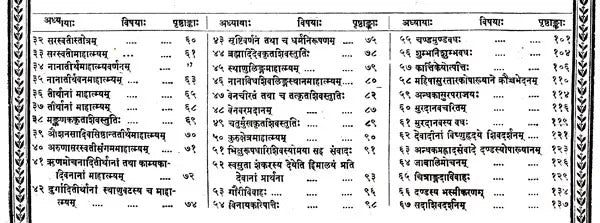 अध्यायाः विषयाः पृष्ठाङ्काः
३२ सरस्वतीस्तोत्रम् ६०
३३ सरस्वतीमाहात्म्यम् ६१
३४ नानातीर्थमाहात्म्यवर्णनम् ६२
३५ नानातीर्थवनमाहात्म्यम् ६३
३६ तीर्थानां माहात्म्यम् ६५
३७ तीर्थानां माहात्म्यम् ६८
३८ मङ्कणककृतशिवस्तुतिः ६९
३९ औशनसादिसिष्ठान्ततीर्थमाहात्म्यम् ७०
४० अरुणासरस्वतीसंगममाहात्म्यम् ७१
४१ ऋणमोचनादितीर्थानां तथा काम्यका-
दिवनानां माहात्म्यम् ७२
४२ दुर्गादितीर्थानां स्थाणुवटस्य च माहा-
त्म्यम् ७४
अध्यायाः विषयाः पृष्ठाङ्काः
४३ सृष्टिवर्णनं तथा च धर्मनिरूपणम् ७५
४४ ब्रह्मादिदेवकृतशिवस्तुतिः ७८
४५ स्थाणुलिङ्गमाहात्म्यम् ७९
४६ नानाविधशिवलिङ्गस्थानमाहात्म्यम् ८०
४७ वेनचरितं तथा च तत्कृतशिवस्तुतिः ८२
४८ वेनवरप्रदानम् ८७
४९ चतुर्मुखकृतशिवस्तुतिः ८९
५० कुरुक्षेत्रमाहात्म्यम् ९०
५१ भिक्षुरूपधारिशिवस्योमया सह संवादः ९१
५२ स्वसुता शंकरस्य देयेति हिमालयं प्रति
देवानां प्रार्थना ९३
५३ गौरीविवाहः ९६
५४ विनायकोत्पत्तिः ९८
अध्यायाः विषयाः पृष्ठाङ्काः
५५ चण्डमुण्डवधः १०१
५६ शुम्भनिशुम्भवधः १०४
५७ कार्त्तिकेयोत्पत्तिः १०६
५८ महिषासुरतारकोपाख्याने क्रौञ्चभेदनम् ११०
५९ अन्धकासुरपराजयः ११४
६० मुरदानवचरितम् ११६
६१ मुरदानवस्य वधः ११९
६२ देवादीनां विष्णुहृदये शिवदर्शनम् १२१
६३ अन्धकप्रह्लादसंवादे दण्डस्योपाख्यानम् १२३
६४ जाबालिमोचनम् १२६
६५ चित्राङ्गदाविवाहः १२९
६६ दण्डस्य भस्मीकरणम् १३४
६७ सदाशिवदर्शनम् १३७